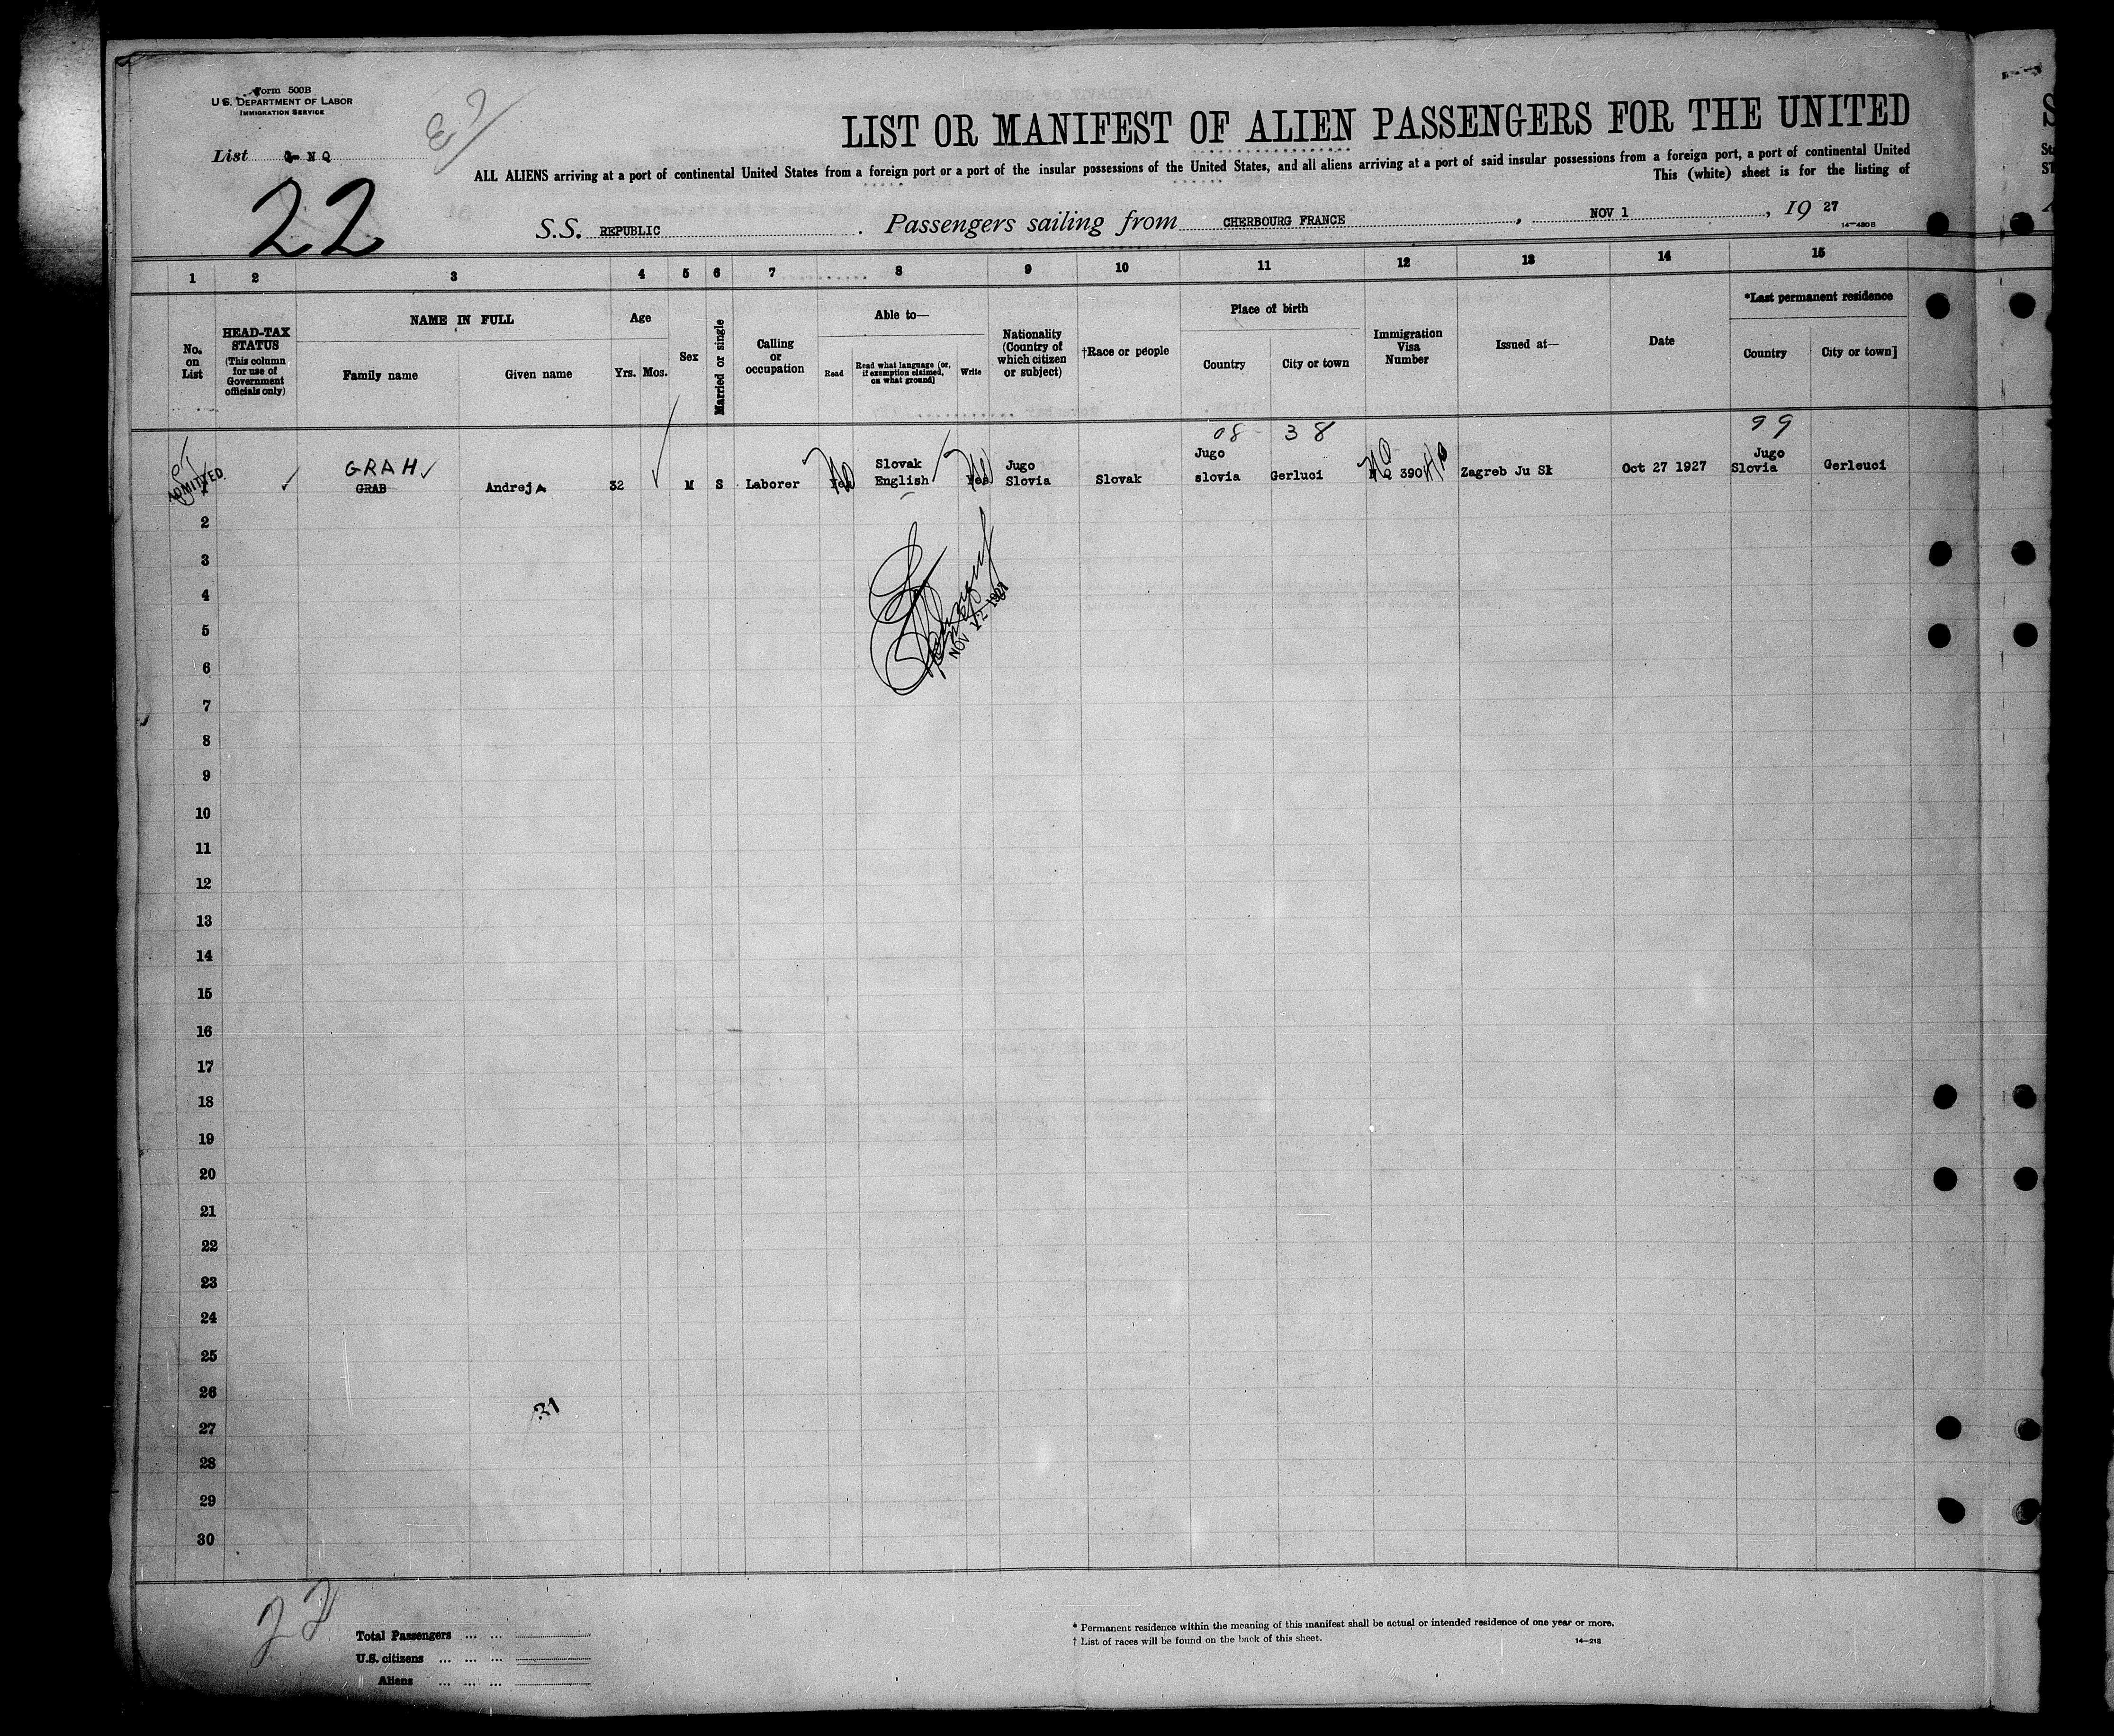 Form 500B
U.S. DEPARTMENT OF LABOR
IMMIGRATION SERVICE
List N Q
22
LIST OR MANIFEST OF ALIEN PASSENGERS FOR THE UNITED
ALL ALIENS arriving at a port of continental United States from a foreign port or a port of the insular possessions of the United States, and all aliens arriving at a port of said insular possessions from a foreign port, a port of continental United
This (white) sheet is for the listing of
S.S. REPUBLIC . Passengers sailing from CHERBOURG FRANCE , NOV 1 , 19 27
14—480B
1 2 3 4 5 6 7 8 9 10 11 12 13 14 15
No. on List
HEAD-TAX STATUS
(This column for use of Government officials only)
NAME IN FULL
Family name
Given name
Age
Yrs. Mos.
Sex
Married or single
Calling or occupation
Able to—
Read
Read what language [or, if exemption claimed, on what ground]
Write
Nationality (Country of which citizen or subject)
†Race or people
Place of birth
Country
City or town
Immigration Visa Number
Issued at—
Date
*Last permanent residence
Country
City or town]
08 - 38
99
ADMITTED
GRAH
GRAB
Andrej
32
M
S
Laborer
Yes
Slovak
English
Yes
Jugo
Slovia
Slovak
Jugo
slovia
Gerluci
390
Zagreb Ju Sl
Oct 27 1927
Jugo
Slovia
Gerleuci
NOV 12 1927
2
3
4
5
6
7
8
9
10
11
12
13
14
15
16
17
18
19
20
21
22
23
24
25
26
27
28
29
30
Total Passengers ... ...
U.S. citizens ... ... ...
Aliens ... ... ...
* Permanent residence within the meaning of this manifest shall be actual or intended residence of one year or more.
† List of races will be found on the back of this sheet.
14—213